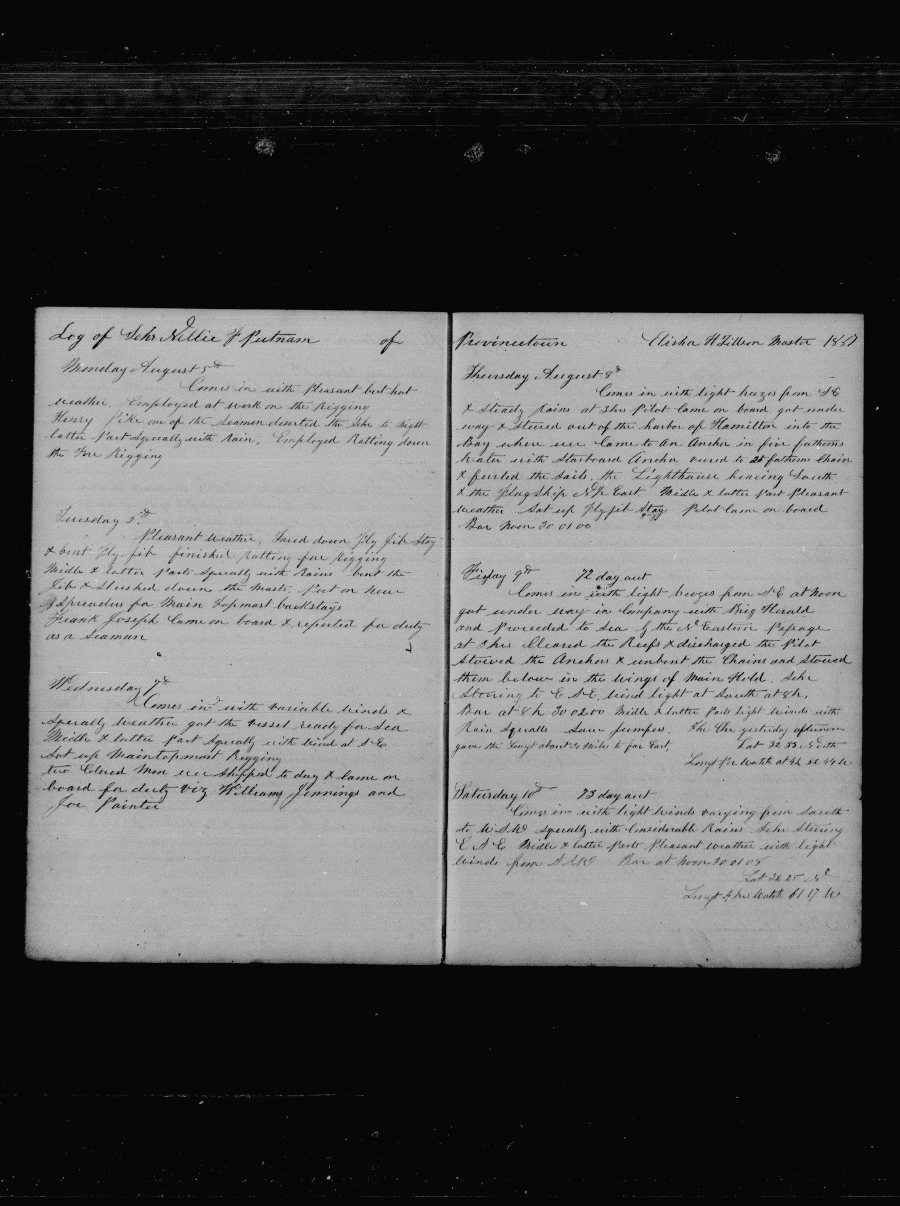 Log of Schr Nellie F Putnam of
Monday August 5th
Comes in with Pleasant but hot
weather employed at work on the Rigging
Henry Pike one of the Seamen deserted the Schr to night
latter Part Squally with Rain. Employed Ratling down
the Fore Rigging
Tuesday
Pleasant weather. Fared down Fly Jib Stay
& bent Fly jib finished Ratling fore Rigging
Midle & latter Parts Squally with Rains bent the
Jib & Slushed down the Masts. Put on new
Spreaders for Main Topmast backstays
Frank Joseph Came on board & reported for duty
as a Seaman
Wednesday 7th
Comes in with variable winds &
Squally weather got the vessel ready for Sea
Midle & latter Part Squally with wind at S E
Sot up Maintopmast Rigging
two Colored Men were Shipped to day & Came on
board for duty viz Williams Jennings and
Joe Painter
Provincetown Elisha H Tillson Master
Thursday August 8th
Comes in with light breezes from S E
& Steady Rains at 3 hrs Pilot Came on board got under
way & Steered out of the harbor of Hamilton into the
Bay where we Came to An Anchor in five fathoms
Water with Starboard Anchor vered to 25 fathoms Chain
& furled the Sails. the Lighthouse bearing South
& the Flag Ship East Midle & latter Part Pleasant
weather Sot up Fly jib Stay Pilot Came on board
Bar Noon 30 01 00
Friday 9th 72 day out
Comes in with light breezes from S E at Noon
got under way in Company with Brig Herald
and Proceeded to Sea by the N Eastern Passage
at 3 hrs Cleared the Reefs & discharged the Pilot
Stowed the Anchors & unbent the Chains and Stowed
them below in the wings of Main Hold. Schr
Steering to E S E wind light at South at 8 h.
Bar at 8 h 30 02 00 Midle & latter Parts light winds with
Rain Squalls Saw jumpers. The Chr yesterday afternoon
gave the Longt about 20 Miles to far East. Lat 32 33 North
Longt Pr Watch at 4 h
Saturday 10th 73 day out
Comes in with light winds varying from South
to W S W Squally with Considerable Rains Schr Steering
E S E Midle & latter Parts Pleasant weather with light
winds from S S W Bar at Noon 30 01 05
Lat
Longt Watch 61 17 W